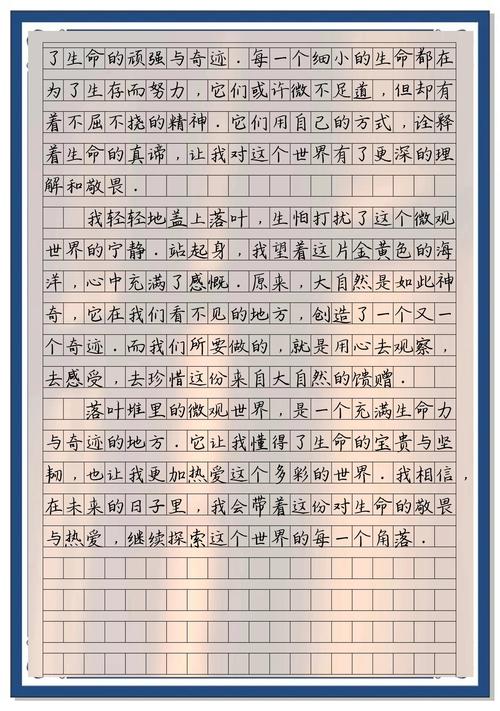 了生命的顽强与奇迹．每一个细小的生命都在
为了生存而努力，它们或许微不足道，但却有
着不屈不挠的精神．它们用自己的方式，诠释
着生命的真谛，让我对这个世界有了更深的理
解和敬畏．
我轻轻地盖上落叶，生怕打扰了这个微观
世界的宁静．站起身，我望着这片金黄色的海
洋，心中充满了感慨．原来，大自然是如此神
奇，它在我们看不见的地方，创造了一个又一
个奇迹．而我们所要做的，就是用心去观察，
去感受，去珍惜这份来自大自然的馈赠．
落叶堆里的微观世界，是一个充满生命力
与奇迹的地方．它让我懂得了生命的宝贵与坚
韧，也让我更加热爱这个多彩的世界．我相信，
在未来的日子里，我会带着这份对生命的敬畏
与热爱，继续探索这个世界的每一个角落．